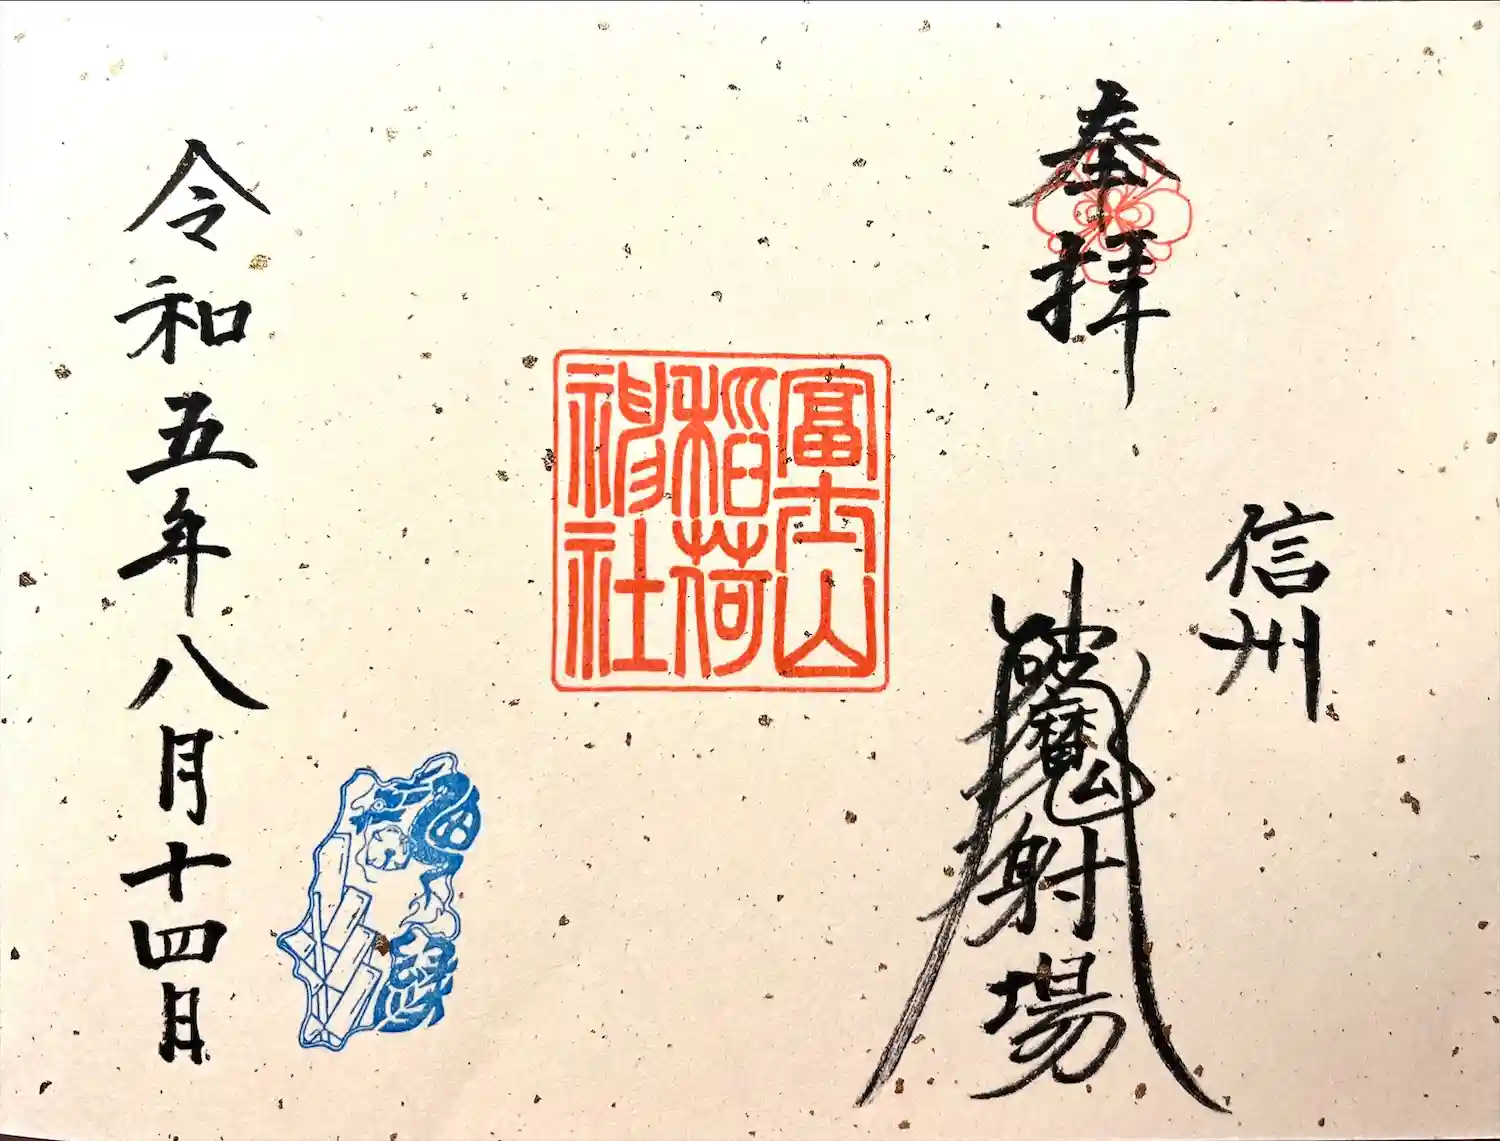 奉拝
信州
破魔射場
冨士山
稲荷
神社
令和五年八月十四日